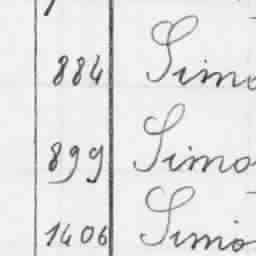 884 Simo
899 Simo
1406 Simo